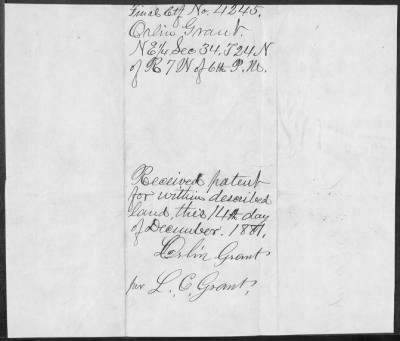 Final Ctf. No. 4245.
Orlin Grant.
NE¼ Sec 34. T24N
of R 7 W of 6th P.M.
Received patent
for within described
land, this 14th day
of December. 1881.
Orlin Grant
per L. C. Grant,